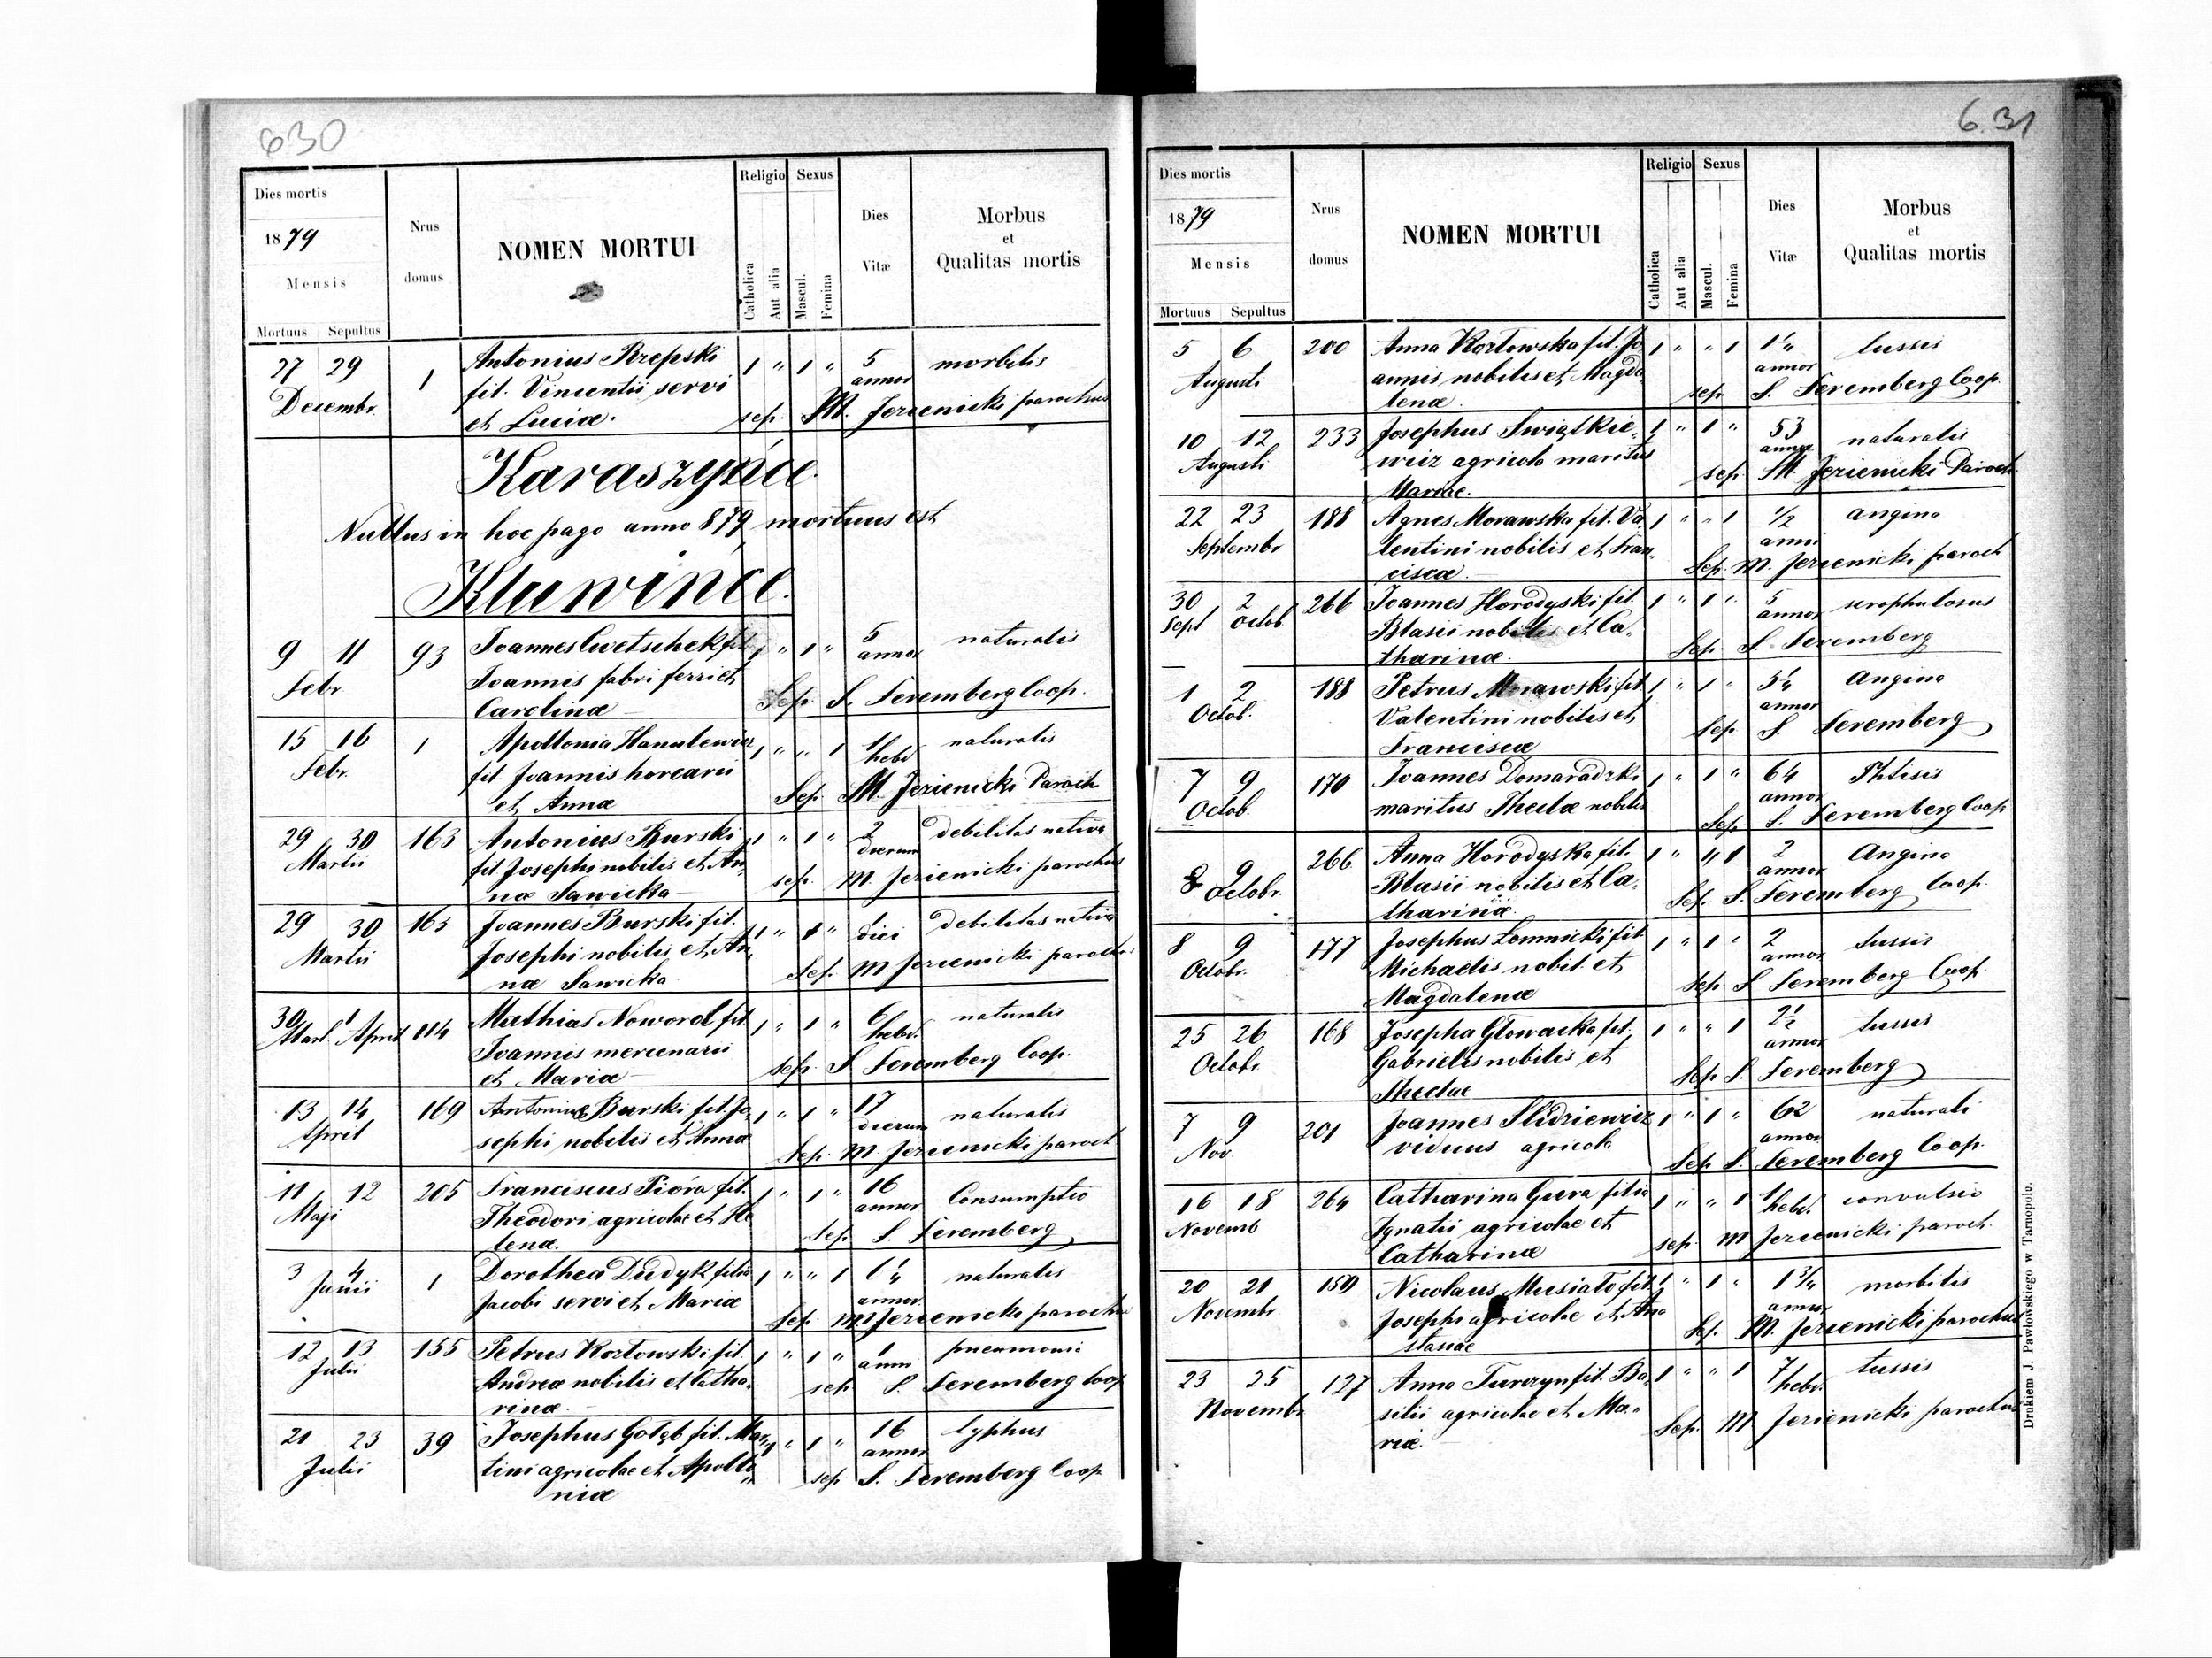 630
Dies mortis
1879
Mensis
Mortuus Sepultus
Nrus
domus
NOMEN MORTUI
Religio
Catholica
Aut alia
Sexus
Mascul.
Femina
Dies
Vitæ
Morbus
et
Qualitas mortis
27 29 1 Antonius Rzepski 1 " 1 " 5 morbilis
Decembr. fil. Vincentii servi annor
et Luciæ. sep. M. Jezienicki parochus
Karaszyńce.
Nullus in hoc pago anno 879 mortuus est
Kluwińce.
9 11 93 Joannes Cwetschek fil 1 " 1 " 5 naturalis
Febr Joannis fabri ferri et annor
Carolinæ Sep. S. Feremberg Coop.
15 16 1 Apollonia Hanulewicz 1 " " 1 1 naturalis
Febr. fil Joannis horearii hebd
et Annæ Sep. M. Jezienicki Paroch
29 30 163 Antonius Burski 1 " 1 " 2 debilitas nativa
Martii fil Josephi nobilis et An dierum
næ Sawicka sep. M. Jezienicki parochus
29 30 163 Joannes Burski fil. 1 " 1 " 1 debilitas nativa
Martii Josephi nobilis et An, diei
næ Sawicka Sep. M. Jezienicki parochus
30 1 114 Mathias Noworol fil 1 " 1 " 6 naturalis
Mart. April Joannis mercenarii hebd.
et Mariæ sep. S Feremberg Coop.
13 14 169 Antonius Burski fil. Jo 1 " 1 " 17 naturalis
April sephi nobilis et Annæ dierum
Sep. M. Jezienicki paroch
11 12 205 Franciscus Pióra fil. 1 " 1 " 16 Consumptio
Maji Theodori agricolæ et He annor
lenæ. Sep. S. Feremberg
3 4 1 Dorothea Dudyk filia 1 " " 1 naturalis
Junii Jacobi servi et Mariæ annor
Sep. M. Jezienicki parochus
12 13 155 Petrus Kozłowski fil. 1 " 1 " 1 pneumonia
Julii Andreæ nobilis et Catha, anni
rinæ. sep S. Feremberg Coop
21 23 39 Josephus Gołąb fil. Mar, 1 " 1 " 16 typhus
Julii tini agricolæ et Apollo annor
niæ sep S. Feremberg Coop
631
Dies mortis
1879
Mensis
Mortuus Sepultus
Nrus
domus
NOMEN MORTUI
Religio
Catholica
Aut alia
Sexus
Mascul.
Femina
Dies
Vitæ
Morbus
et
Qualitas mortis
5 6 200 Anna Kozłowska fil. Jo 1 " " 1 tussis
Augusti annis nobilis et Magda annor
lenæ. sep S. Feremberg Coop.
10 12 233 Josephus Swiątkie, 1 " 1 " 53 naturalis
Augusti wicz agricola maritus annor
Mariæ. sep M. Jezienicki Paroch
22 23 188 Agnes Morawska fil. Va 1 " " 1 1/2 angina
Septembr lentini nobilis et Fran, anni
ciscæ. Sep. M. Jezienicki paroch
30 2 266 Joannes Horodyski fil. 1 " 1 " 5 scrophulosus
Sept Octob Blasii nobilis et Ca, annor
tharinæ. Sep. S. Feremberg
1 2 188 Petrus Morawski fil 1 " 1 " angina
Octob. Valentini nobilis et annor
Franciscæ Sep. S. Feremberg
7 9 170 Joannes Domaradzki 1 " 1 " 64 Phtisis
Octob. maritus Theclæ nobilis annor
Sep S. Feremberg Coop
8 9 266 Anna Horodyska fil. 1 " " 1 2 Angina
Octobr. Blasii nobilis et Ca, annor
tharinæ. Sep. S. Feremberg Coop.
8 9 177 Josephus Łomnicki fil 1 " 1 " 2 tussis
Octobr. Michaelis nobil. et annor
Magdalenæ Sep. S Feremberg Coop
25 26 168 Josepha Głowacka fil. 1 " " 1 2 1/2 tussis
Octobr. Gabrielis nobilis et annor
Theclae Sep S. Feremberg
7 9 201 Joannes Sledziewicz 1 " 1 " 62 naturali
Nov. viduus agricola annor
Sep S. Feremberg Coop.
16 18 264 Catharina Gura filia 1 " " 1 1 convulsio
Novemb Ignatii agricolae et hebd.
Catharinæ sep. M Jezienicki paroch.
20 21 150 Nicolaus Musiało fil. 1 " 1 " 1 3/4 morbilis
Novembr. Josephi agricolae et Ana annor
stasiae Sep. M. Jezienicki parochus
23 25 127 Anna Turczyn fil. Ba, 1 " " 1 7 tussis
Novembr. silii agricolae et Ma, hebd.
riæ. Sep. M. Jezienicki parochus
Drukiem J. Pawłowskiego w Tarnopolu.